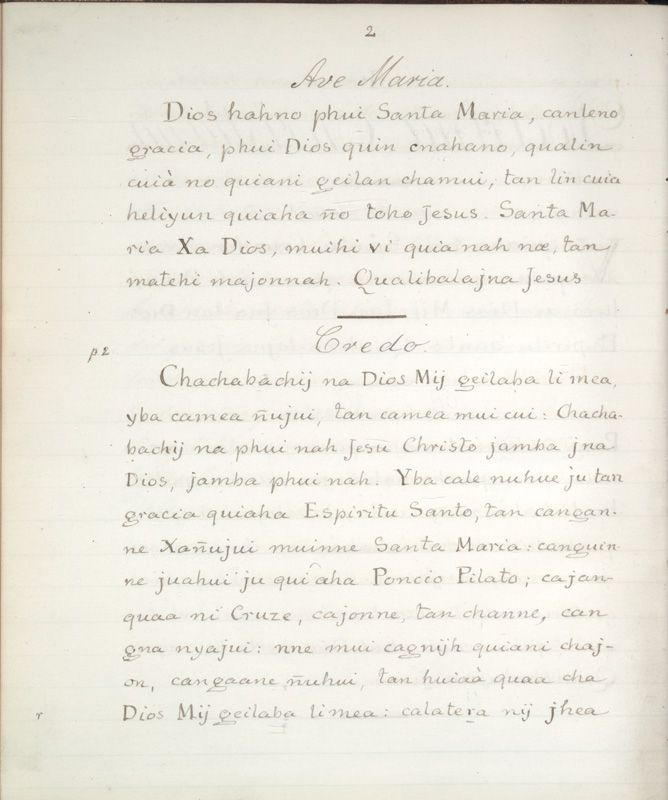 2
Ave Maria.
Dios hahno phui Santa Maria, canleno
gracia, phui Dios quin cnahano, qualin
cuià no quiani geilan chamui, tan lin cuia
heliyun quiaha ño toho Jesus. Santa Ma-
ria Xa Dios, muihi vi quia nah næ, tan
matehi majonnah. Qualibalajna Jesus
Credo.
p 2
Chachabàchij na Dios Mij geilaba li mea,
yba camea ñujui, tan camea mui cui: Chacha-
bachij na phui nah Jesu Christo jamba jna
Dios, jamba phui nah. Yba cale nuhue ju tan
gracia quiaha Espiritu Santo, tan cangan-
ne Xañujui muinne Santa Maria: canguin-
ne juahui ju qui aha Poncio Pilato; cajan-
quaa ni Cruze, cajonne, tan channe, can
gna nyajui: nne mui cagnijh quiani chaj-
on, cangaane ñuhui, tan huiaà quaa cha
Dios Mij geilaba li mea: calatera nij jhea
r